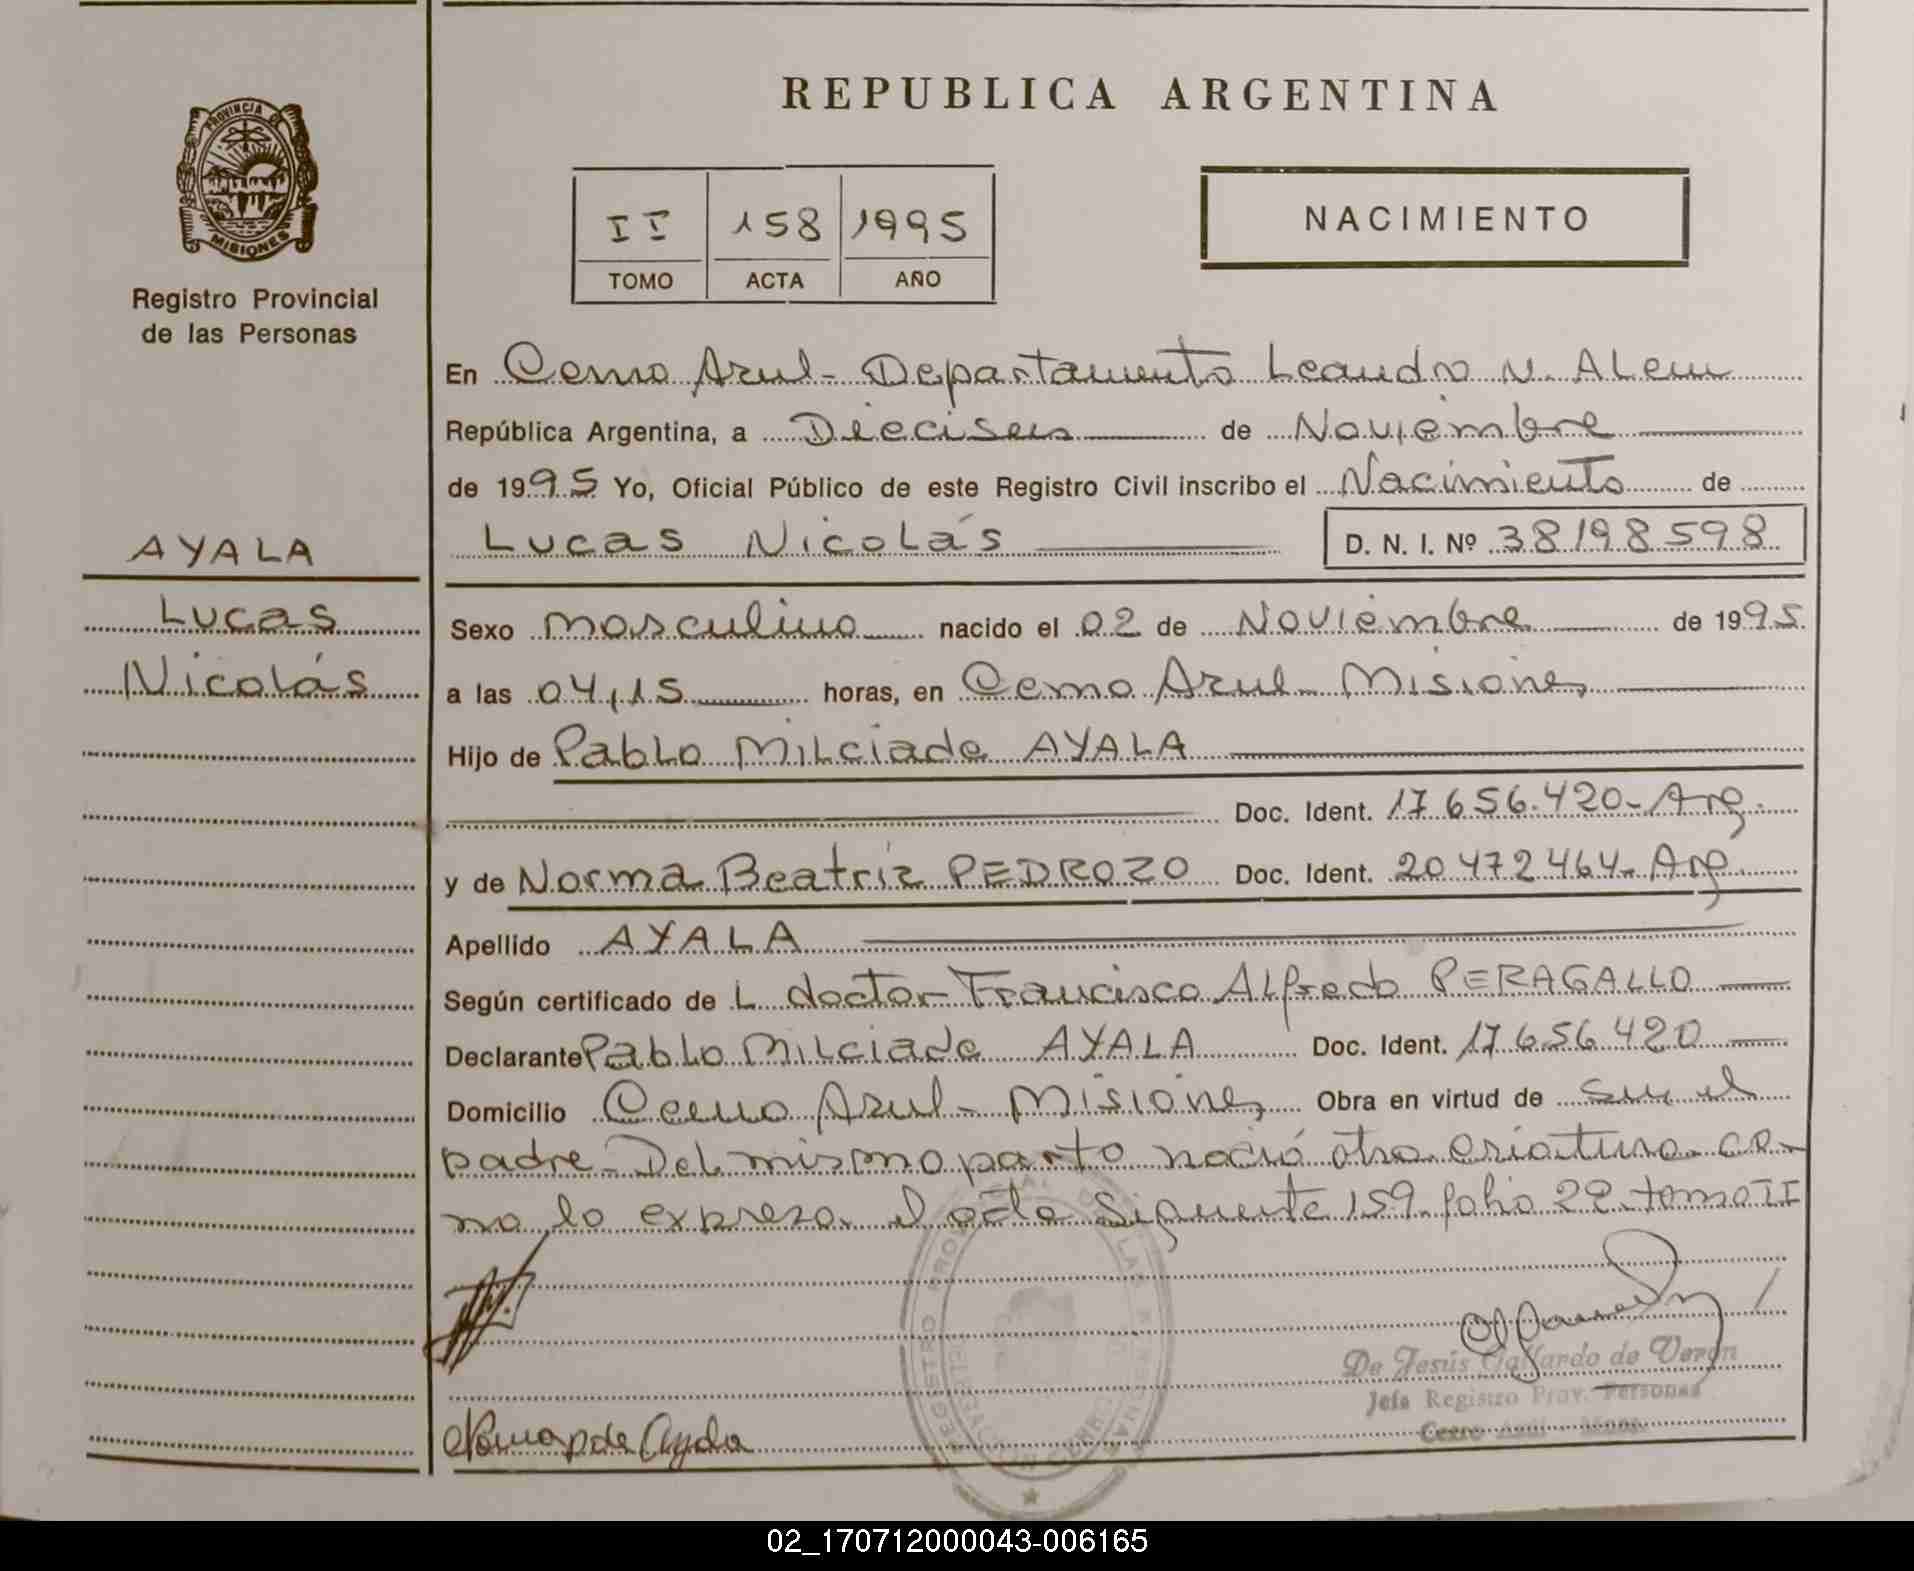 REPUBLICA ARGENTINA
PROVINCIA DE
MISIONES
Registro Provincial
de las Personas
II 158 1995
TOMO ACTA AÑO
NACIMIENTO
AYALA
Lucas
Nicolás
En Cerro Azul - Departamento Leandro N. Alem
República Argentina, a Dieciseis de Noviembre
de 1995 Yo, Oficial Público de este Registro Civil inscribo el Nacimiento de
Lucas Nicolás D. N. I. Nº 38198598
Sexo masculino nacido el 02 de Noviembre de 1995.
a las 04,15 horas, en Cerro Azul - Misiones
Hijo de Pablo Milciade AYALA
Doc. Ident. 17.656.420- Arg.
y de Norma Beatriz PEDROZO Doc. Ident. 20.472.464- Arg.
Apellido AYALA
Según certificado de L doctor Francisco Alfredo PERAGALLO
Declarante Pablo Milciade AYALA Doc. Ident. 17.656.420
Domicilio Cerro Azul - Misiones Obra en virtud de ser el
padre - Del mismo parto nació otra criatura - co-
mo lo expresa el acta siguiente 159 folio 22 tomo II
De Jesús Gallardo de Verón
Jefa Registro Prov. Personas
Cerro Azul - Mnes.
Norma P de Ayala
02_170712000043-006165